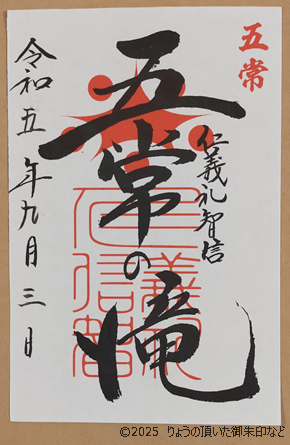 五常
仁義礼智信
五常の滝
令和五年九月三日
©2025 りょうの頂いた御朱印など